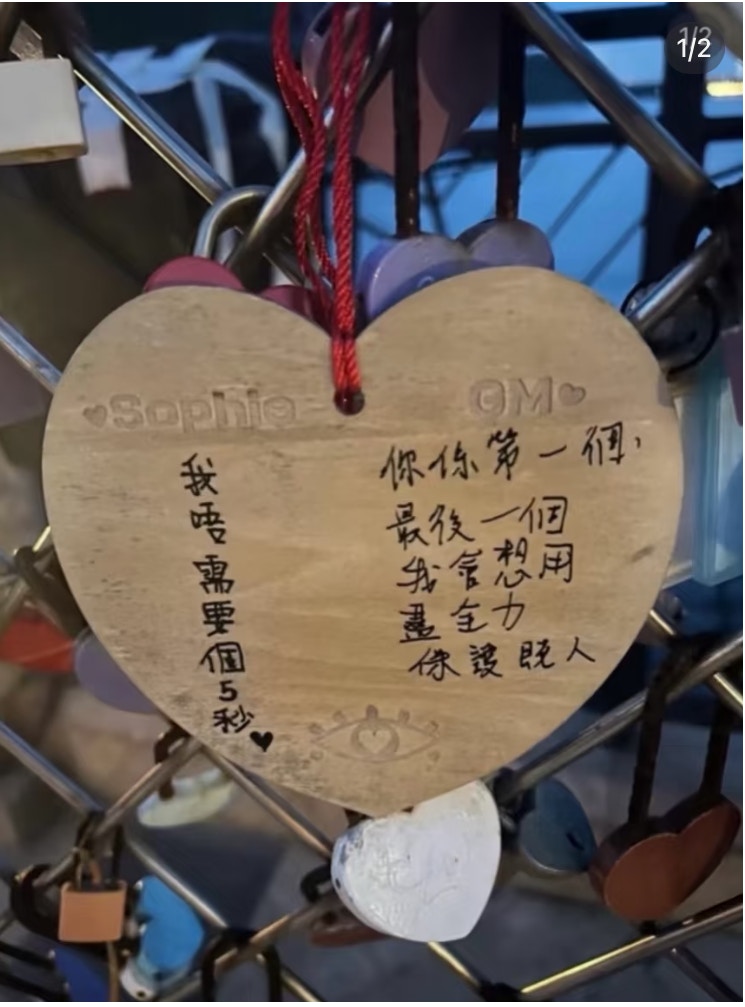 1/2
♥Sophie
GM♥
我唔需要個5秒♥
你係第一個,
最後一個
我會想用
盡全力
保護既人